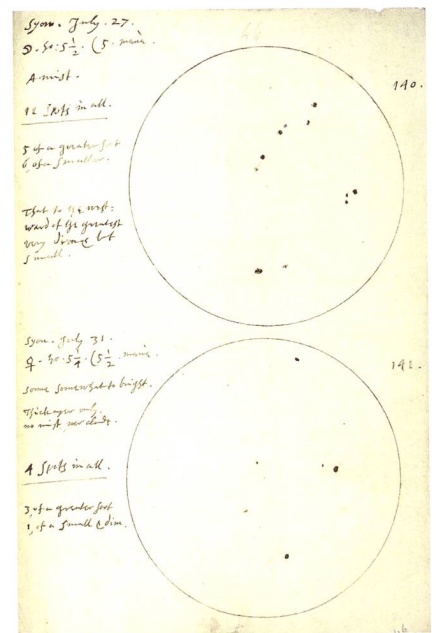 Syon. July. 27.
☽. ho: 5 1/2. (5. mane.
A mist.
140.
12 spots in all.
5 of a greater sort
6, of a smaller.
That to the west:
ward of the greatest
very dimme but
small.
Syon. July 31.
♀. ho: 5 1/4. (5 1/2.
Sonne somewhat to bright.
Thick ayer only.
no mist, nor cloude.
4 spots in all.
3, of a greater sort
1, of a small & dim.